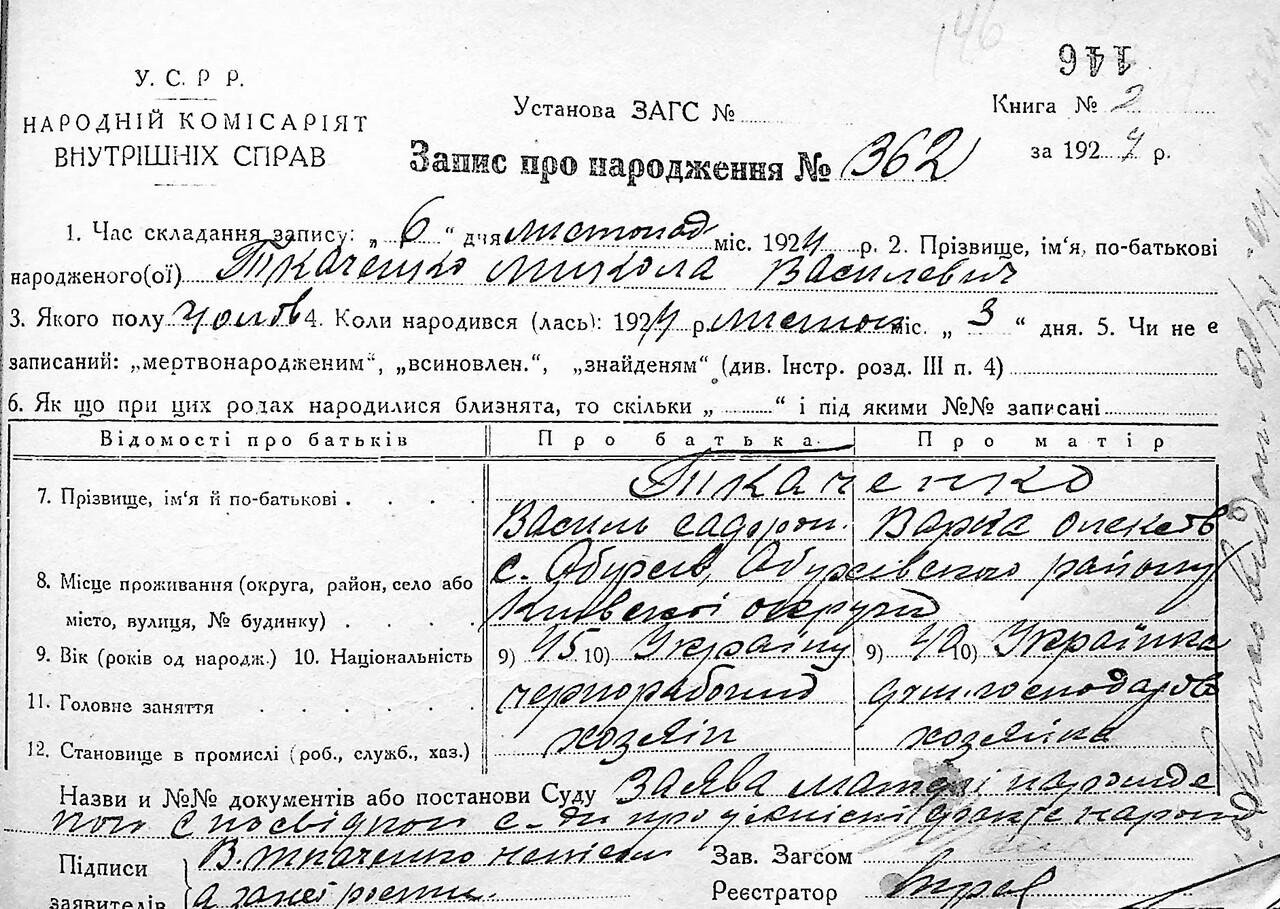 146
146
У. С. Р Р.
НАРОДНІЙ КОМІСАРІЯТ
ВНУТРІШНІХ СПРАВ
Установа ЗАГС №
Книга № 2
за 1924 р.
Запис про народження № 362
1. Час складання запису: „ 6 “ дня листопад міс. 1924 р. 2. Прізвище, ім'я, по-батькові
народженого(ої) Ткаченко Микола Василевич
3. Якого полу чолов 4. Коли народився (лась): 1924 р листопа міс. „ 3 “ дня. 5. Чи не є
записаний: „мертвонародженим“, „всиновлен.“, „знайденям“ (див. Інстр. розд. III п. 4)
6. Як що при цих родах народилися близнята, то скільки „ “ і під якими №№ записані
Відомості про батьків Про батька Про матір
7. Прізвище, ім'я й по-батькові Ткаченко
Василь Варка
8. Місце проживання (округа, район, село або с. Обухів, Обухівського району
місто, вулиця, № будинку) Київської округи
9. Вік (років од народж.) 10. Національність 9) 45 10) Українц 9) 40 10) Українка
11. Головне заняття чернорабочий дом. господарств
12. Становище в промислі (роб., служб., хаз.) хозяін хозяйка
Назви и №№ документів або постанови Суду Заява матері
Підписи В. Ткаченко Зав. Загсом
заявителів Реєстратор